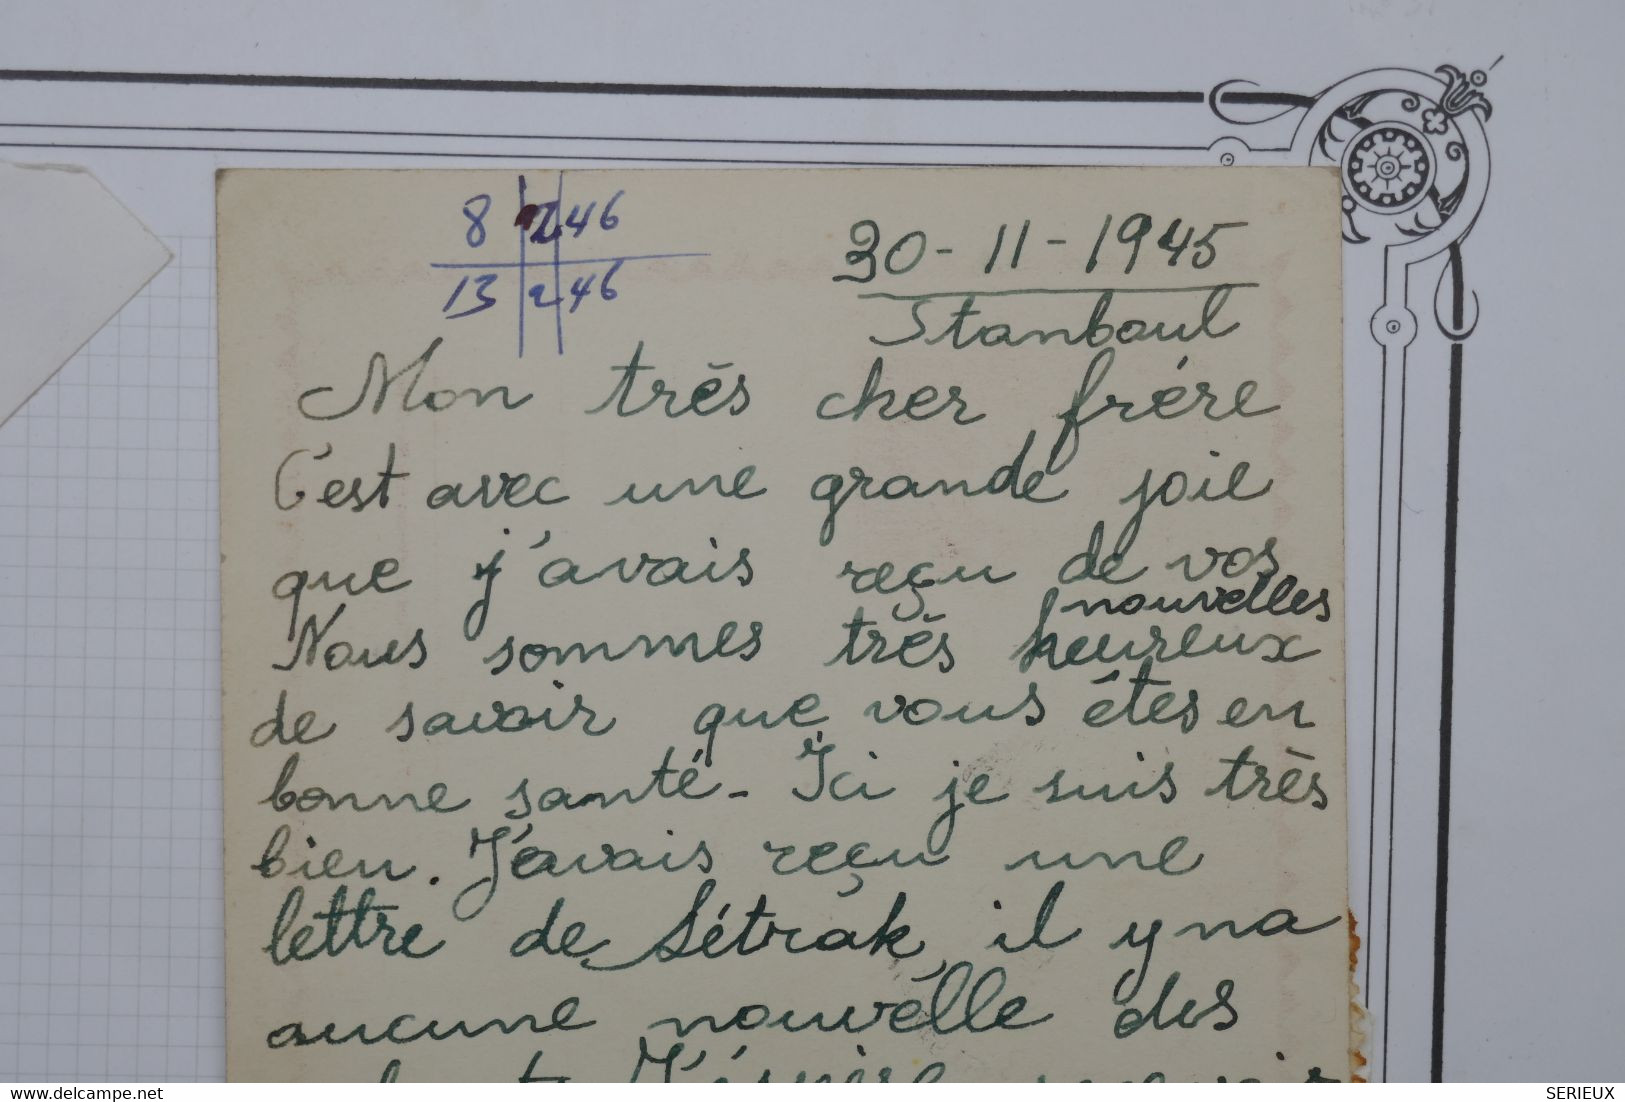 8 2 46
13 2 46
30-11-1945
Stanboul
Mon très cher frére
C'est avec une grande joie
que j'avais reçu de vos
nouvelles
Nous sommes très heureux
de savoir que vous étes en
bonne santé - Ici je suis très
bien. J'avais reçu une
lettre de Sétrak, il y na
aucune nouvélle des
SERIEUX
delcampe.net